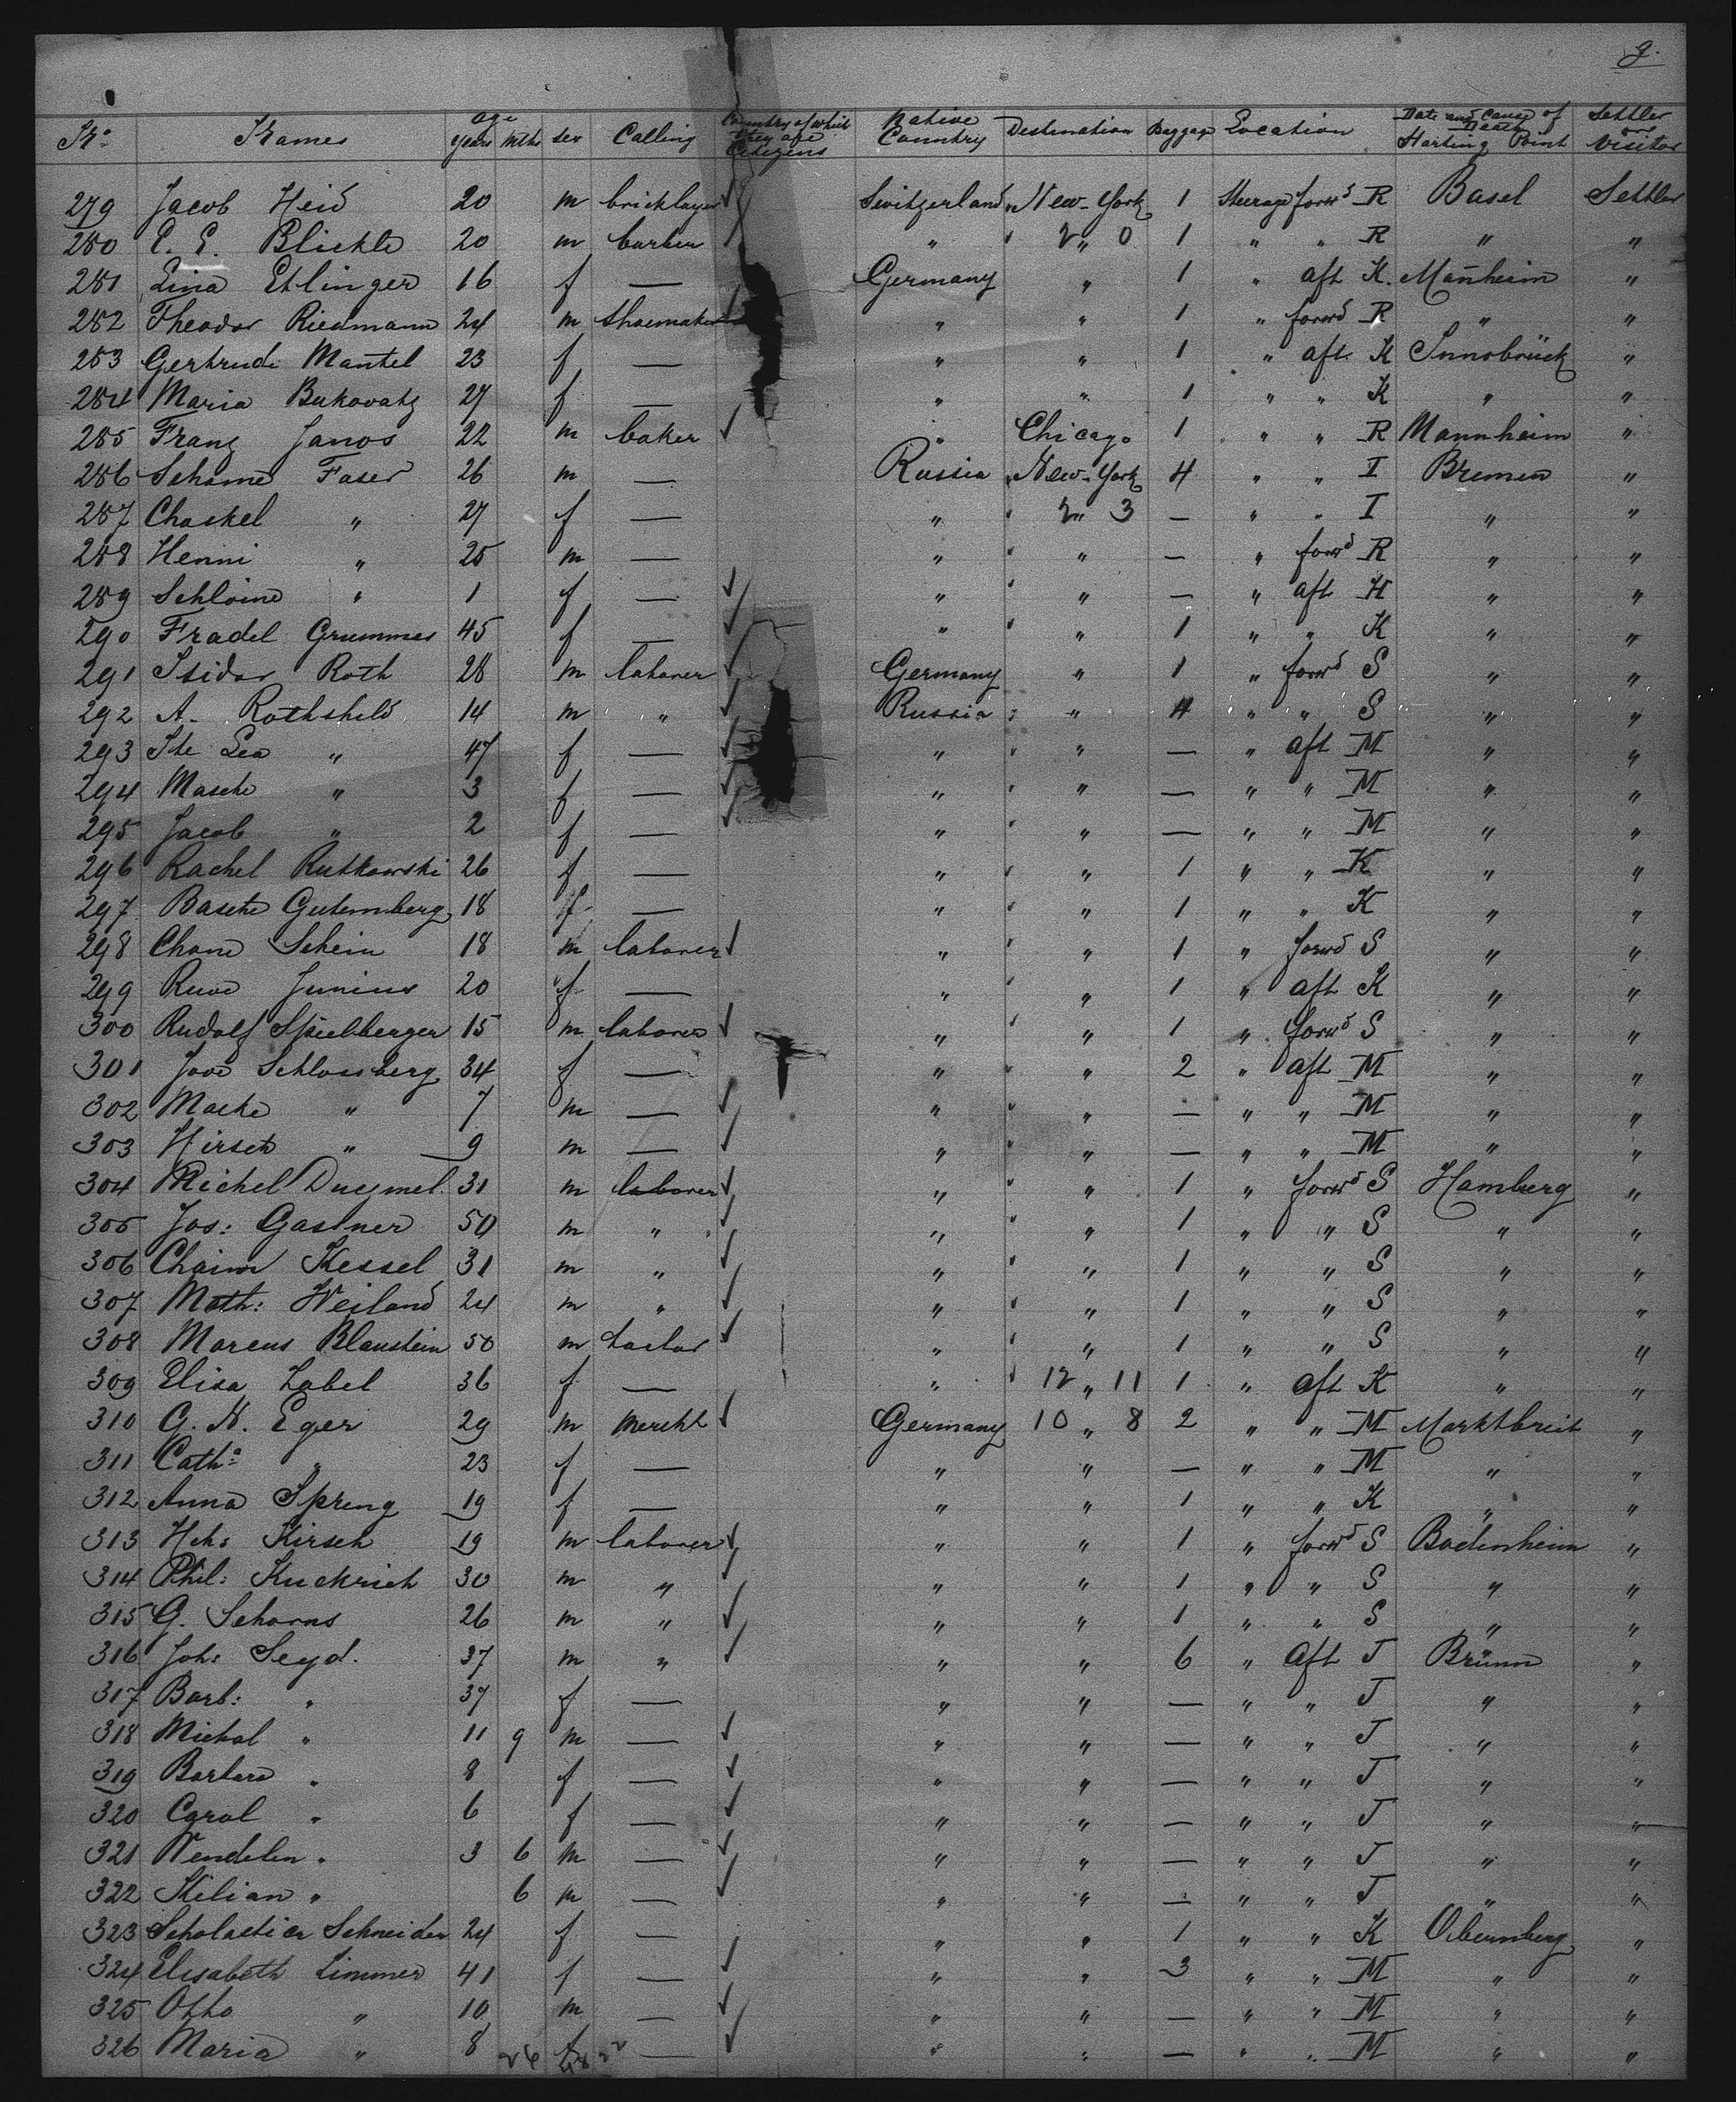 9.
No. Names Age Years Mths sex Calling Country of which they are Citizens Native Country Destination Baggage Location Date and Cause of Death Starting Point Settler or Visitor
279 Jacob Heid 20 m bricklayer Switzerland New-York 1 Steerage forwd R Basel Settler
280 E. E. Blickle 20 m barber " 2 " 0 1 " " R " "
281 Lina Etlinger 16 f — Germany " 1 " aft K. Mannheim "
282 Theodor Riedmann 24 m shoemaker " " 1 " forwd R " "
283 Gertrude Mantel 23 f — " " 1 " aft K Innsbrück "
284 Maria Bukovatz 27 f — " " 1 " " K " "
285 Franz Janos 22 m baker " Chicago 1 " " R Mannheim "
286 Schome Faser 26 m — Russia New-York 4 " " I Bremen "
287 Chaskel " 27 f — " 2 " 3 — " " I " "
288 Henni " 25 m — " " — " forwd R " "
289 Schloime " 1 f — " " — " aft H " "
290 Fradel Grummes 45 f — " " 1 " " K " "
291 Isidor Roth 28 m laborer Germany " 1 " forwd S " "
292 A. Rothshild 14 m " Russia " 4 " " S " "
293 Ite Lea " 47 f — " " — " aft M " "
294 Masche " 3 f — " " — " " M " "
295 Jacob " 2 f — " " — " " M " "
296 Rachel Rutkowski 26 f — " " 1 " " K " "
297 Basche Gutemberg 18 f — " " 1 " " K " "
298 Chane Schein 18 m laborer " " 1 " forwd S " "
299 Ruve Junius 20 f — " " 1 " aft K " "
300 Rudolf Spielberger 15 m laborer " " 1 " forwd S " "
301 Jove Schlossberg 34 f — " " 2 " aft M " "
302 Maske " 7 m — " " — " " M " "
303 Hirsch " 9 m — " " — " " M " "
304 Michel Duezmel. 31 m laborer " " 1 " forwd S Hamburg "
305 Jos: Gastner 50 m " " " 1 " " S " "
306 Chaim Kessel 31 m " " " 1 " " S " "
307 Math: Weiland 24 m " " " 1 " " S " "
308 Marcus Blaustein 50 m tailor " " 1 " " S " "
309 Elisa Zabel 36 f — " 12 " 11 1 " aft K " "
310 G. N. Eger 29 m Mercht Germany 10 " 8 2 " " M Marktbreit "
311 Catha " 23 f — " " — " " M " "
312 Anna Spreng 19 f — " " 1 " " K " "
313 Hch: Kirsch 19 m laborer " " 1 " forwd S Bodenheim "
314 Phil: Kuckrich 30 m " " " 1 " " S " "
315 G. Schorns 26 m " " " 1 " " S " "
316 Joh: Seyd. 37 m " " " 6 " aft J Brünn "
317 Barb: " 37 f — " " — " " J " "
318 Michal " 11 9 m — " " — " " J " "
319 Barbara " 8 f — " " — " " J " "
320 Carol " 6 f — " " — " " J " "
321 Wendelin " 3 6 m — " " — " " J " "
322 Kilian " 6 m — " " — " " J " "
323 Scholastica Schneider 24 f — " " 1 " " K Obernberg "
324 Elisabeth Limmer 41 f — " " 3 " " M " "
325 Otto " 10 m — " " — " " M " "
326 Maria " 8 f — " " — " " M " "